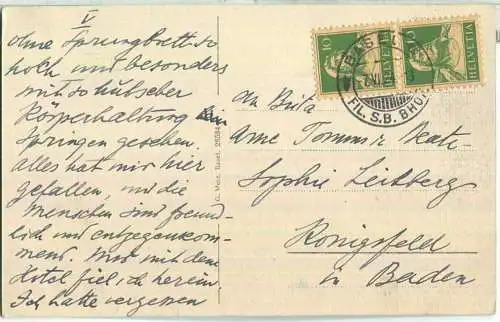 V
ohne Sprungbrett so
hoch und besonders
mit so hübscher
Körperhaltung
Springen gesehen.
Alles hat mir hier
gefallen, und die
Menschen sind freund-
lich und entgegenkom-
mend. Nur mit dem
Hotel fiel ich herein.
Ich hatte vergessen
G. Metz, Basel. 25584
10 HELVETIA
10 HELVETIA
BASEL
FIL. S.B. BHOF
An
Sophie Leitberg
Königsfeld
in Baden